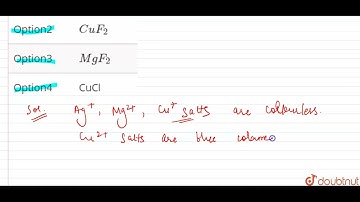 Option2 CuF₂
Option3 MgF₂
Option4 CuCl
Sol. Ag⁺, Mg²⁺, Cu⁺ Salts are colourless.
Cu²⁺ Salts are blue coloure
doubtnut